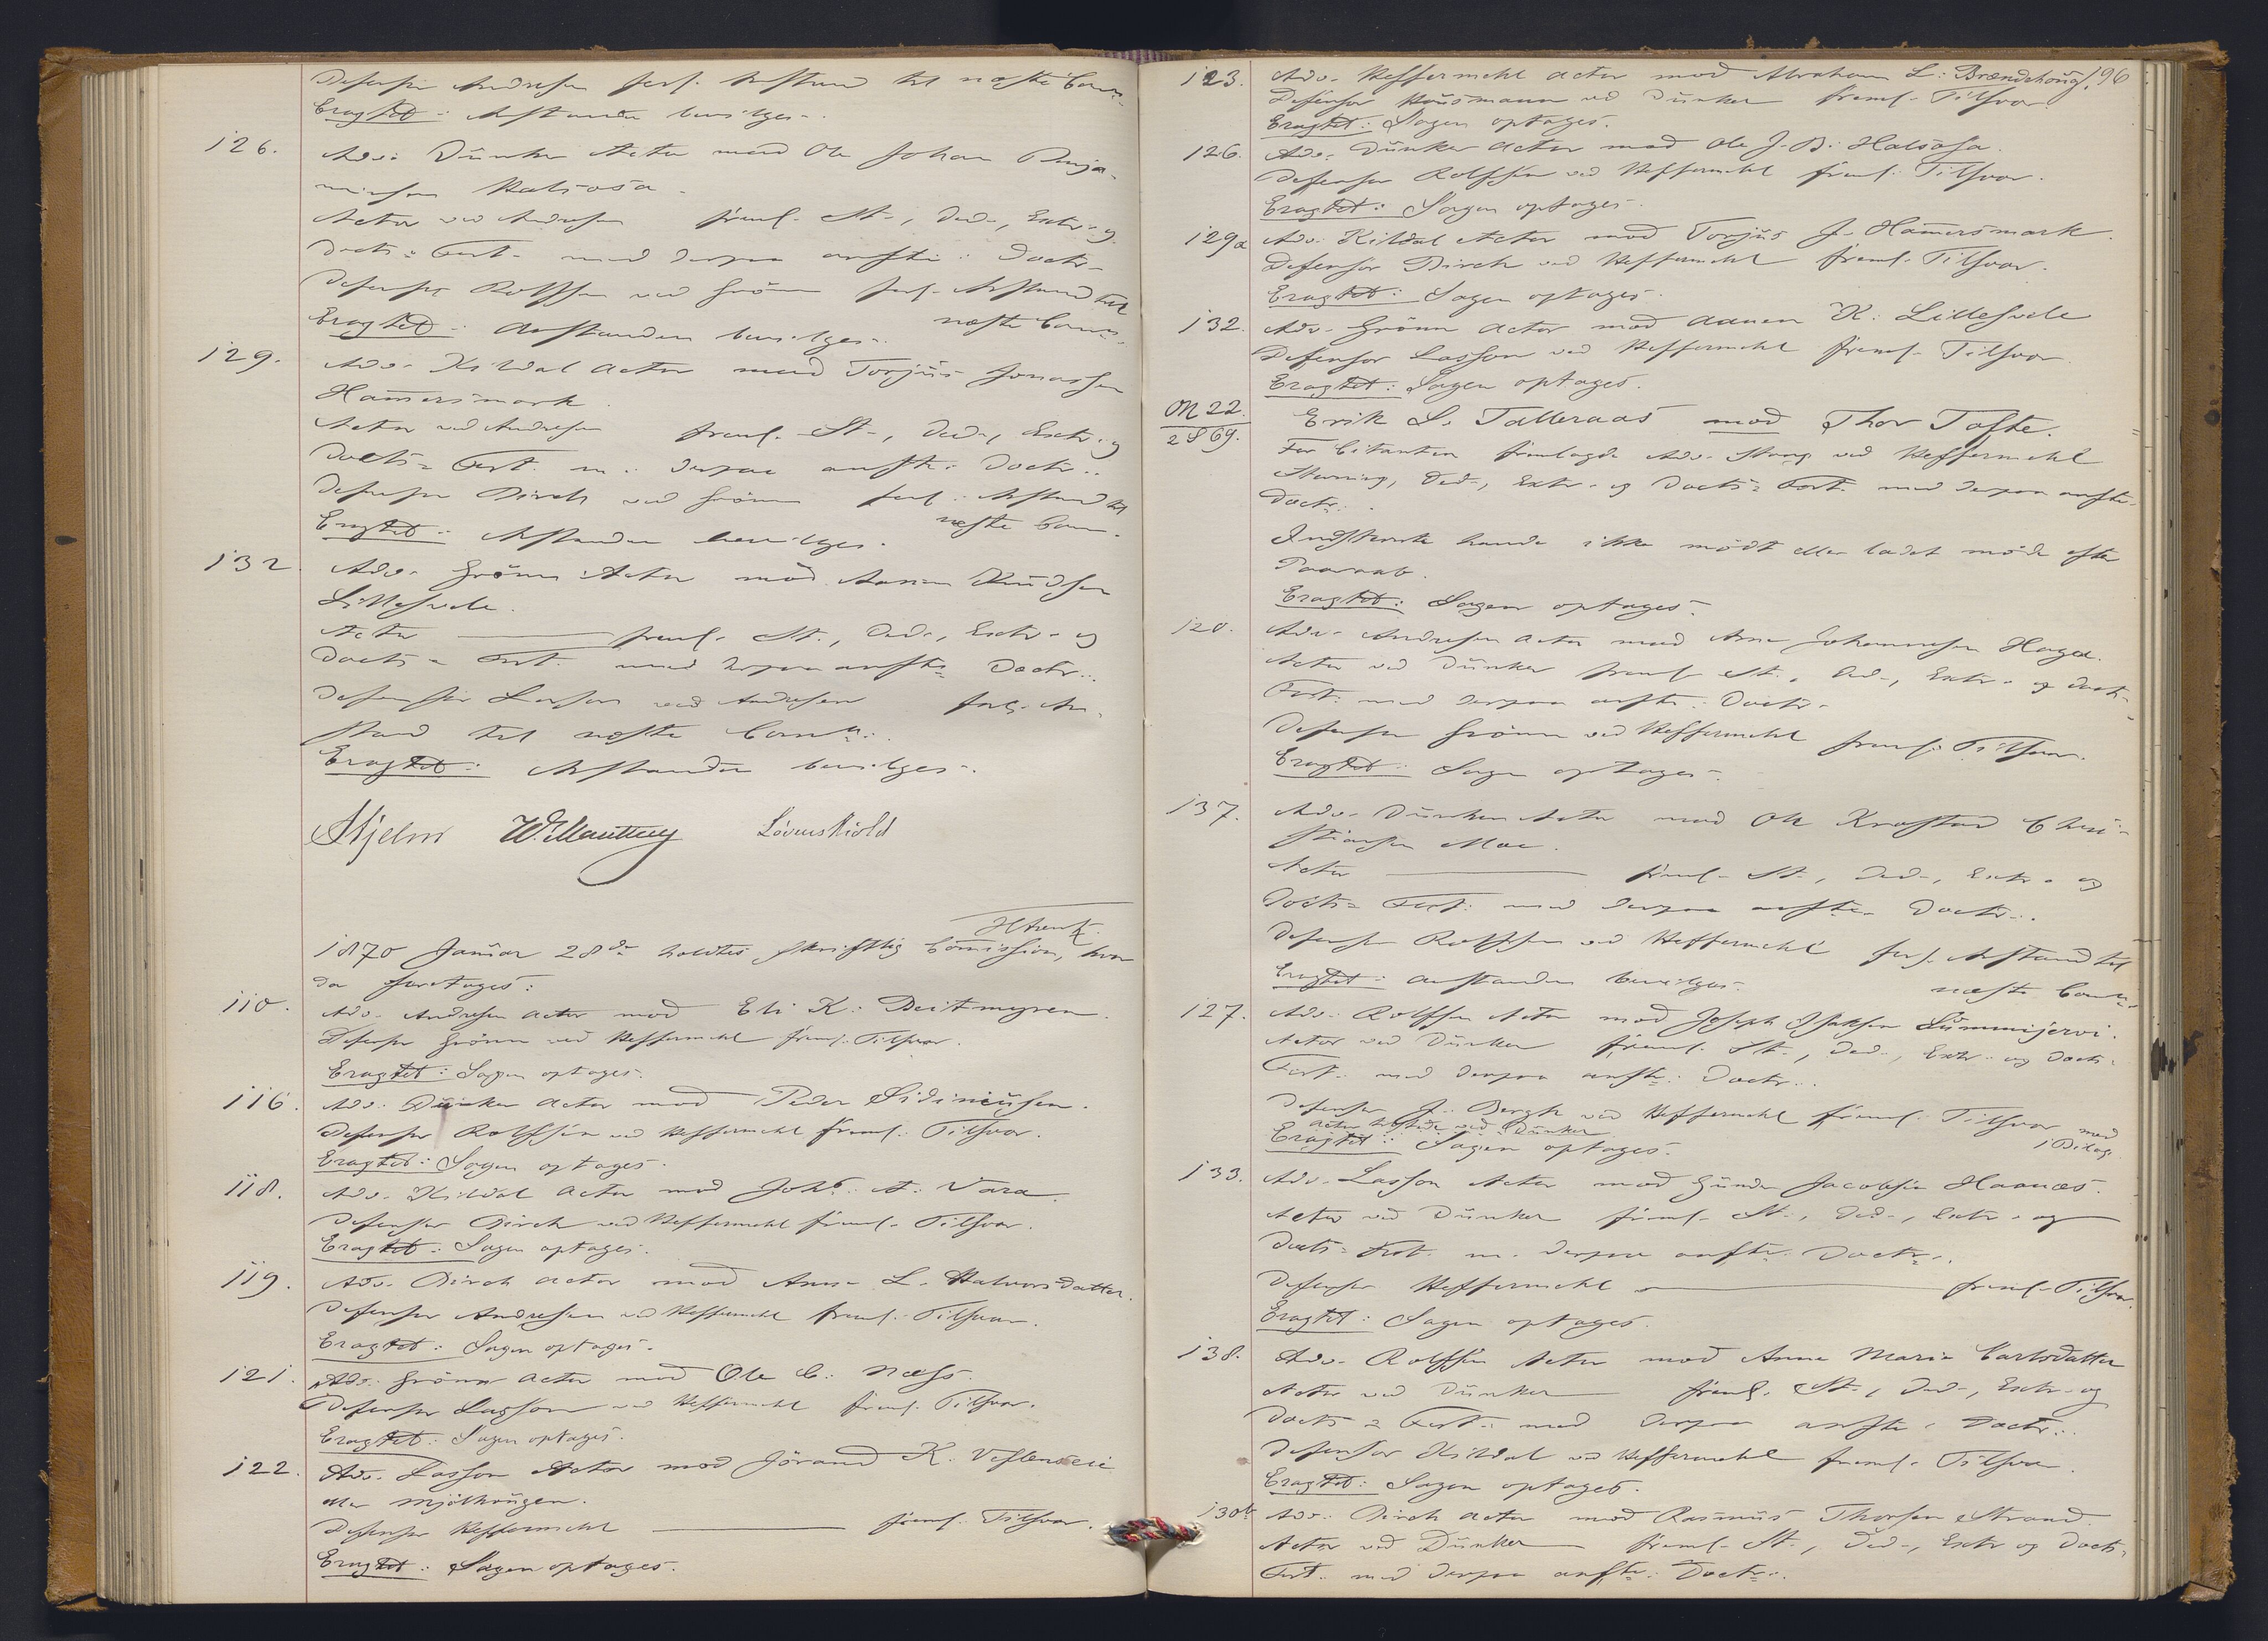 Defensor Andresen forl. Anstand til næste Comm:
Eragtet: Anstanden bevilges.
126. Adv: Dünker Actor mod Ole Johan Benja-
minsen Halsosa.
Actor ved Andresen freml. St-, Ded-, Extr- og
Docts- Fort- med derpaa anfte: Doctr-
Defensor Rolfsen ved Grönn forl. Anstand til
næste Comm:
Eragtet: Anstanden bevilges.
129. Adv. Kildal Actor mod Torjüs Jonassen
Hamersmark.
Actor ved Andresen freml. St-, Ded-, Extr- og
Docts- Fort. m. derpaa anfte: Doctr.
Defensor Birch ved Grönn forl. Anstand til
næste Comm.
Eragtet: Anstanden bevilges.
132. Adv. Grönn Actor mod Aanen Knüdsen
Lillesvele.
Actor freml. St., Ded-, Extr- og
Docts- Fort. med derpaa anfte Doctr.
Defensor Lasson ved Andresen forl. An-
stand til næste Comm:
Eragtet: Anstanden bevilges.
Hjelm W. Manthey Lövenskiold
1870 Januar 28de holdtes skriftlig Comission, hvor
da foretoges:
110. Adv. Andresen Actor mod Eli K: Beitmyren.
Defensor Grönn ved Heffermehl freml. Tilsvar.
Eragtet: Sagen optages.
116. Adv. Dünker Actor mod Peder Sidiniüsen.
Defensor Rolfsen ved Heffermehl freml. Tilsvar.
Eragtet: Sagen optages.
118. Adv. Kildal Actor mod Johs: A: Vara.
Defensor Birch ved Heffermehl freml. Tilsvar.
Eragtet: Sagen optages.
119. Adv. Birch Actor mod Anne L. Halvorsdatter.
Defensor Andresen ved Heffermehl freml. Tilsvar.
Eragtet: Sagen optages.
121. Adv. Grönn Actor mod Ole C. Næss.
Defensor Lasson ved Heffermehl freml. Tilsvar.
Eragtet: Sagen optages.
122. Adv. Lasson Actor mod Jörand K.
eller Mjölhougen.
Defensor Heffermehl freml. Tilsvar.
Eragtet: Sagen optages.
196
123. Adv. Heffermehl Actor mod Abraham L: Brændehoug.
Defensor Hüsmann ved Dünker freml. Tilsvar.
Eragtet: Sagen optages.
126. Adv. Dünker Actor mod Ole J. B. Halsosa.
Defensor Rolfsen ved Heffermehl freml. Tilsvar.
Eragtet: Sagen optages.
129a Adv. Kildal Actor mod Torjüs J. Hamersmark.
Defensor Birch ved Heffermehl freml. Tilsvar.
Eragtet: Sagen optages.
132. Adv. Grönn Actor mod Aanen K: Lillesvele
Defensor Lasson ved Heffermehl freml. Tilsvar.
Eragtet: Sagen optages.
22. Erik L. Talleraas mod Thor Tofte.
2 S 69. For Citanten fremlagde Adv. Stang ved Heffermehl
Stevning, Ded-, Extr- og Docts- Fort. med derpaa anfte
Doctr.
Indstevnte havde ikke mödt eller ladet möde efter
Paaraab.
Eragtet: Sagen optages.
120. Adv. Andresen Actor mod Arne Johannesen Hagen.
Actor ved Dünker freml. St., Ded-, Extr- og Docts-
Fort. med derpaa anfte: Doctr.
Defensor Grönn ved Heffermehl freml. Tilsvar.
Eragtet: Sagen optages.
137. Adv. Dünker Actor mod Ole Krostad Chri-
stiansen Moe.
Actor freml. St., Ded-, Extr- og
Docts- Fort: med derpaa anfte Doctr.
Defensor Rolfsen ved Heffermehl forl. Anstand til
næste Comm:
Eragtet: Anstanden bevilges.
127. Adv. Rolfsen Actor mod Joseph Isaksen Lümmijervi.
Actor ved Dünker freml. St., Ded-, Extr- og Docts-
Fort. med derpaa anfte: Doctr.
Defensor J. Bergh ved Heffermehl freml. Tilsvar med
1 Bilag.
Actor ved Dünker
Eragtet: Sagen optages.
133. Adv. Lasson Actor mod Günder Jacobsen Haanæs.
Actor ved Dünker freml. St., Ded-, Extr- og
Docts- Fort. m. derpaa anfte: Doctr.
Defensor Heffermehl freml. Tilsvar.
Eragtet: Sagen optages.
138. Adv. Rolfsen Actor mod Anne Marie Carlsdatter
Actor ved Dünker freml. St., Ded-, Extr- og
Docts- Fort: med derpaa anfte: Doctr.
Defensor Kildal ved Heffermehl freml. Tilsvar.
Eragtet: Sagen optages.
130b Adv. Birch Actor mod Rasmüs Thorsen Strand.
Actor ved Dünker freml. St., Ded-, Extr og Docts-
Fort. med derpaa anfte: Doctr.